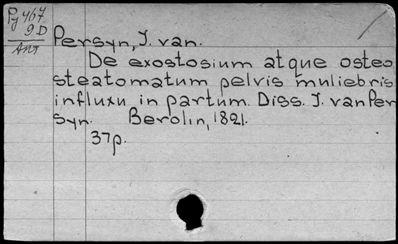 Py 467
9D
Ant
Persyn, J. van.
De exostosium atque osteo
steatomatum pelvis muliebris
influxu in partum. Diss. J. van Per
syn. Berolin, 1821.
37p.